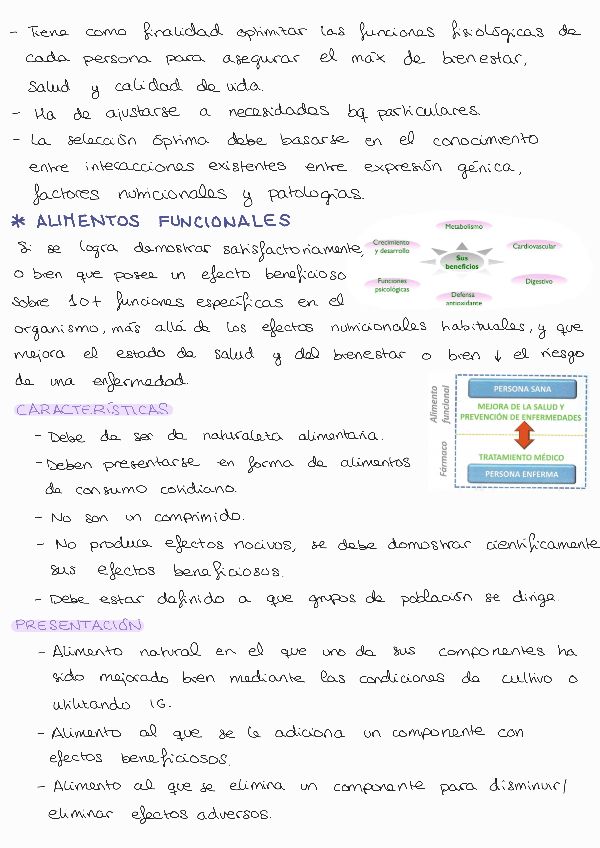 - Tiene como finalidad optimizar las funciones fisiológicas de
cada persona para asegurar el máx de bienestar,
salud y calidad de vida.
- Ha de ajustarse a necesidades bq particulares.
- La selección óptima debe basarse en el conocimiento
entre interacciones existentes entre expresión génica,
factores nutricionales y patologías.
* ALIMENTOS FUNCIONALES
Si se logra demostrar satisfactoriamente,
o bien que posee un efecto beneficioso
sobre 1o+ funciones específicas en el
organismo, más allá de los efectos nutricionales habituales, y que
mejora el estado de salud y del bienestar o bien ↓ el riesgo
de una enfermedad.
Metabolismo
Crecimiento
y desarrollo
Cardiovascular
Sus
beneficios
Funciones
psicológicas
Digestivo
Defensa
antioxidante
CARACTERÍSTICAS
- Debe de ser de naturaleza alimentaria.
- Deben presentarse en forma de alimentos
de consumo cotidiano.
- No son un comprimido.
- No produce efectos nocivos, se debe demostrar científicamente
sus efectos beneficiosos.
- Debe estar definido a que grupos de población se dirige.
Alimento
funcional
Fármaco
PERSONA SANA
MEJORA DE LA SALUD Y
PREVENCIÓN DE ENFERMEDADES
TRATAMIENTO MÉDICO
PERSONA ENFERMA
PRESENTACIÓN
- Alimento natural en el que uno de sus componentes ha
sido mejorado bien mediante las condiciones de cultivo o
utilizando IG.
- Alimento al que se le adiciona un componente con
efectos beneficiosos.
- Alimento al que se elimina un componente para disminuir/
eliminar efectos adversos.